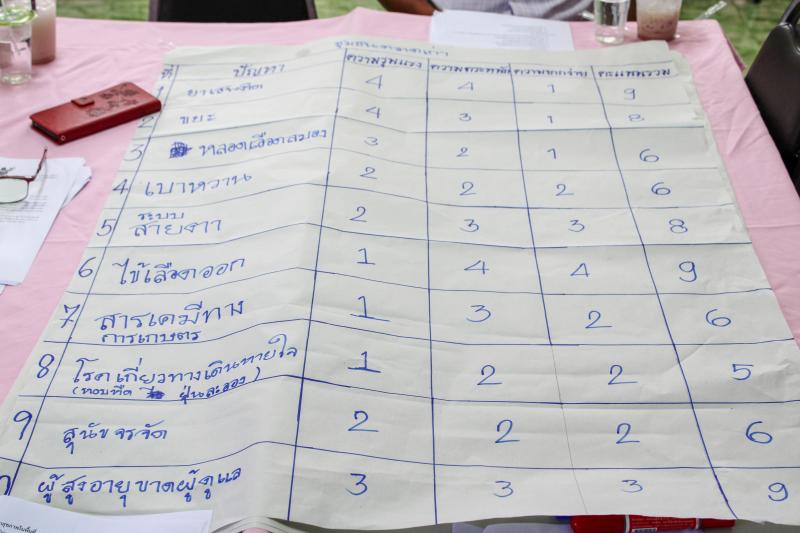 ที่ ปัญหา ความรุนแรง ความตระหนัก ความยากง่าย คะแนนรวม
1 ยาเสพติด 4 4 1 9
2 ขยะ 4 3 1 8
3 หลอดเลือดสมอง 3 2 1 6
4 เบาหวาน 2 2 2 6
5 ระบบ
สายตา 2 3 3 8
6 ไข้เลือดออก 1 4 4 9
7 สารเคมีทาง
การเกษตร 1 3 2 6
8 โรคเกี่ยวทางเดินหายใจ 1 2 2 5
(หอบหืด ฝุ่นละออง)
9 สุนัขจรจัด 2 2 2 6
ผู้สูงอายุขาดผู้ดูแล 3 3 3 9